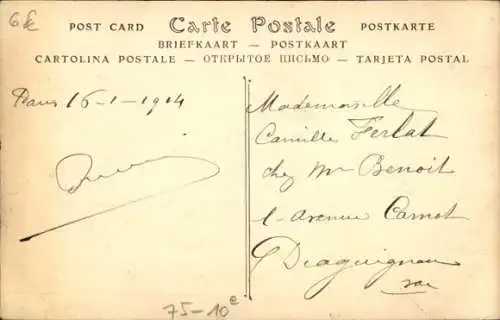 6€
POST CARD Carte Postale POSTKARTE
BRIEFKAART — POSTKAART
CARTOLINA POSTALE — ОТКРЫТОЕ ПИСЬМО — TARJETA POSTAL
Paris 16-1-1914
Mademoiselle
Camille Ferlat
chez Mr Benoit
1 avenue Carnot
Draguignan
Var
75-10e